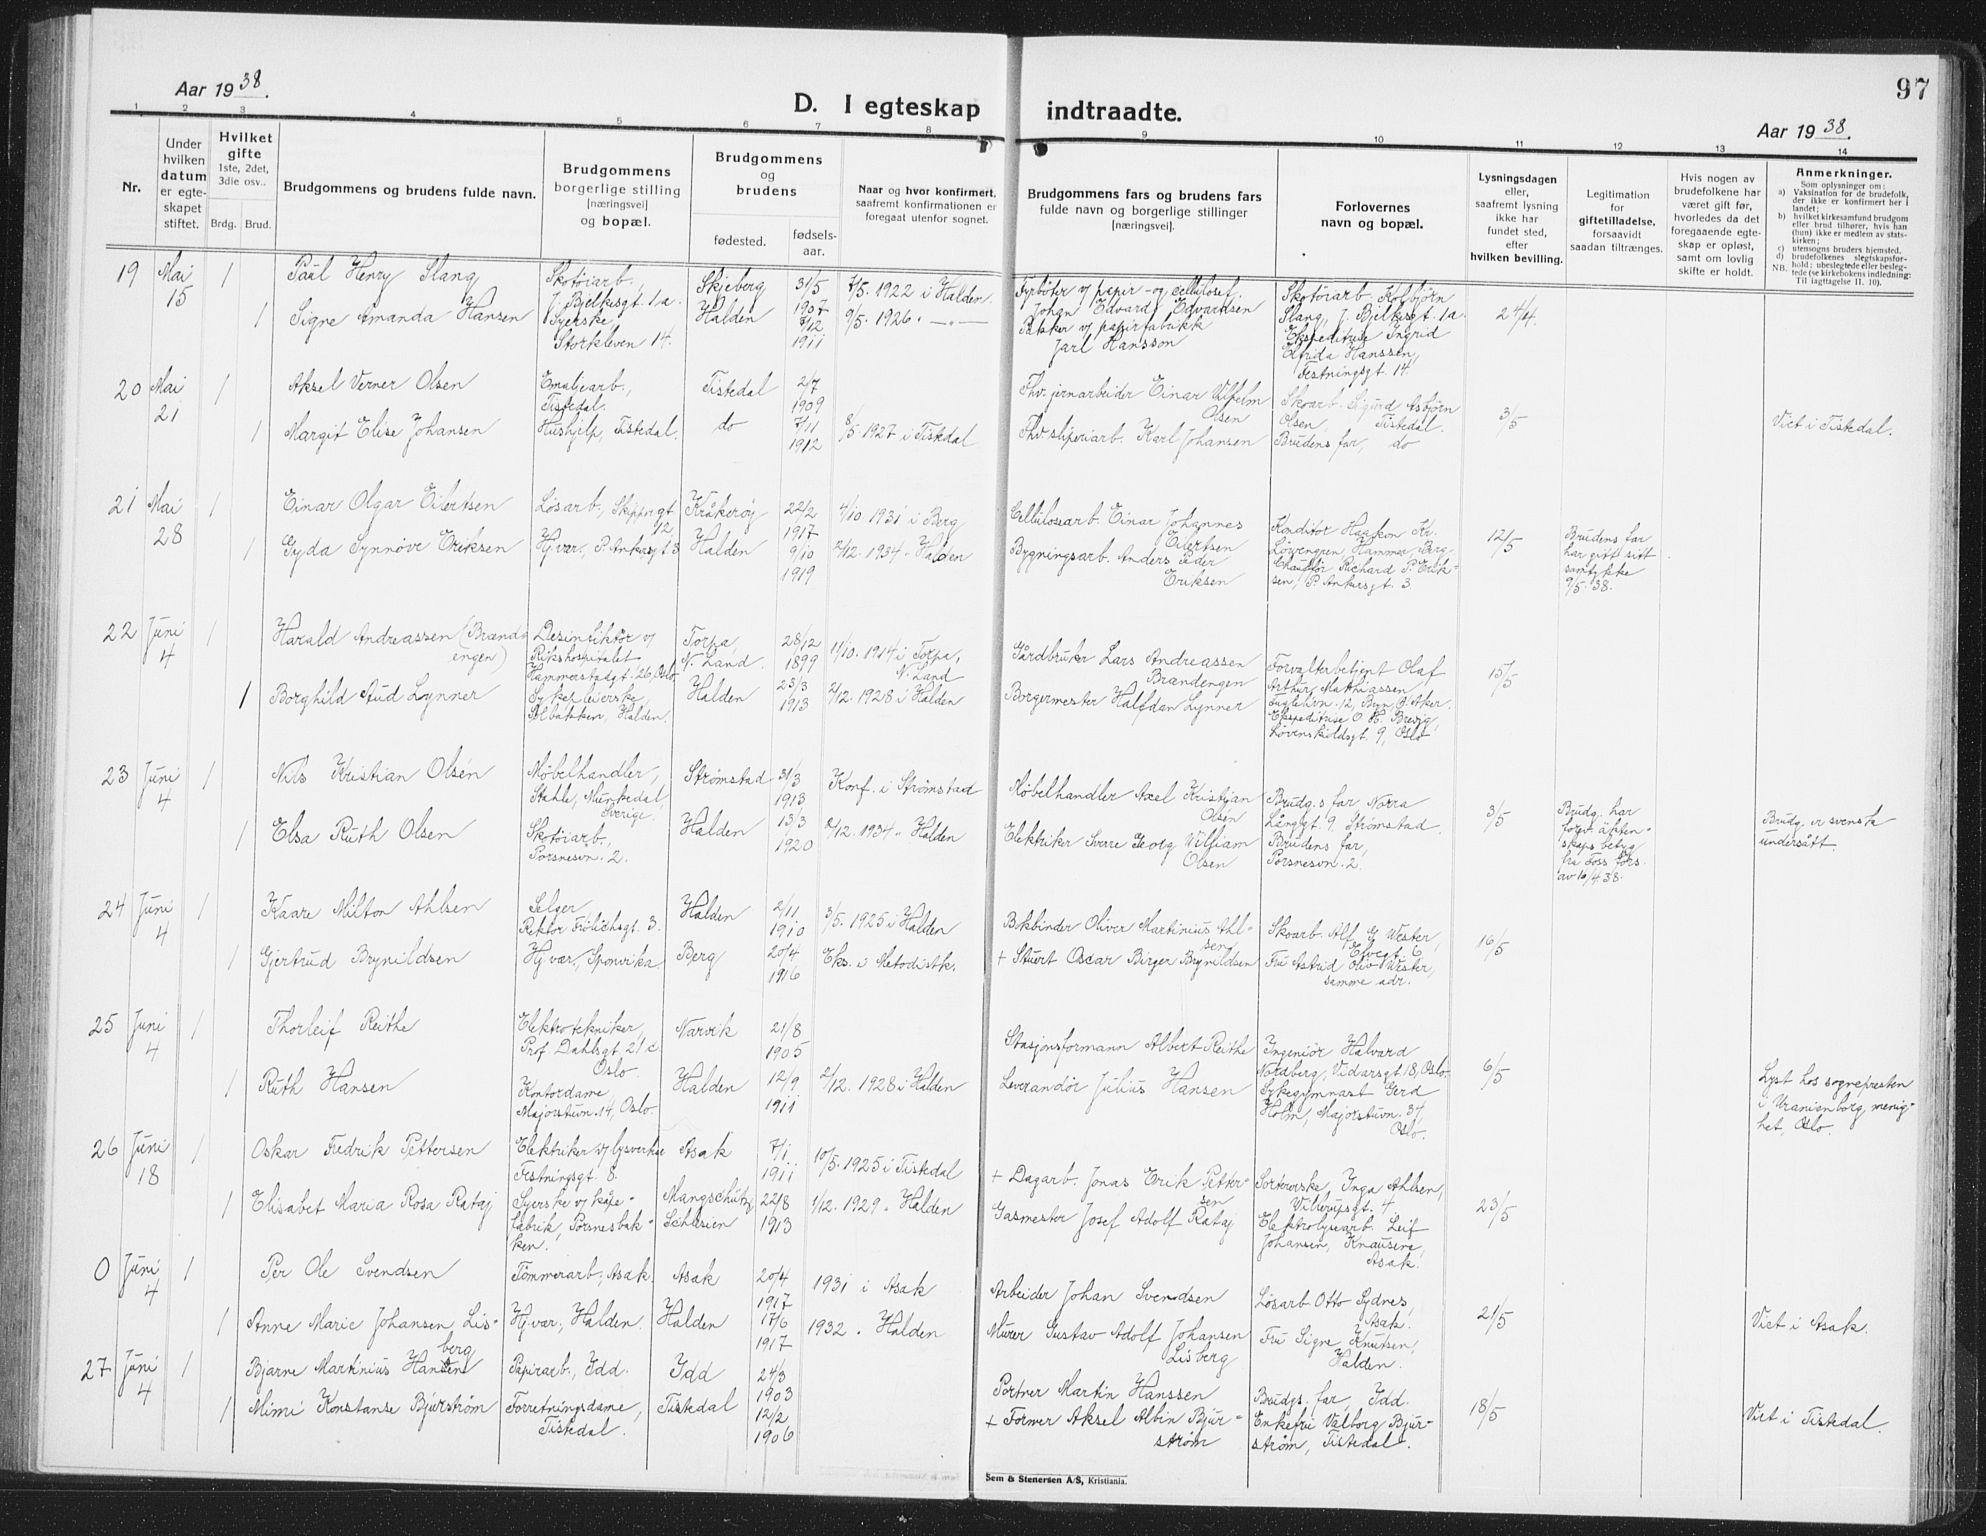 Aar 1938.
D. I egteskap indtraadte.
97
Aar 1938.
1 2 3 4 5 6 7 8 9 10 11 12 13 14
Nr.
Under hvilken datum er egteskapet stiftet.
Hvilket gifte 1ste, 2det, 3die osv..
Brdg. Brud.
Brudgommens og brudens fulde navn.
Brudgommens borgerlige stilling [næringsvei] og bopæl.
Brudgommens og brudens
fødested.
fødselsaar.
Naar og hvor konfirmert, saafremt konfirmationen er foregaat utenfor sognet.
Brudgommens fars og brudens fars fulde navn og borgerlige stillinger [næringsvei].
Forlovernes navn og bopæl.
Lysningsdagen eller, saafremt lysning ikke har fundet sted, efter hvilken bevilling.
Legitimation for giftetilladelse, forsaavidt saadan tiltrænges.
Hvis nogen av brudefolkene har været gift før, hvorledes da det foregaaende egteskap er opløst, samt om lovlig skifte er holdt.
Anmerkninger.
Som oplysninger om:
a) Vaksination for de brudefolk, der ikke er konfirmert her i landet;
b) hvilket kirkesamfund brudgom eller brud tilhører, hvis han (hun) ikke er medlem av statskirken;
c) utensogns bruders hjemsted.
d) brudefolkenes slegtskapsforhold; ubeslegtede eller beslegtede (se kirkebokens indledning:
NB. Til iagttagelse II. 10).
19 Mai 15 1 Paul Henry Slang Skotøiarb., J. Bjelkesgt. 1.a. Skjeberg 31/5 1907 7/5. 1922 i Halden. Fyrbøter v/ papir- og cellulosef. Johan Edvard Edvardsen Skotøiarb. Kolbjørn Slang, J. Bjelkesgt. 1a. 24/4.
1 Signe Amanda Hansen Syerske, Storkleven 14. Halden 7/12 1911 9/5. 1926. —.— Pakker v/ papirfabrikk Jarl Hansson Ekspeditrise Ingrid Elfrida Hanssen, Festningsgt. 14.
20 Mai 21 1 Aksel Verner Olsen Emaljearb., Tistedal. Tistedal 2/7 1909 Fhv. jernarbeider Einar Vilhelm Olsen Skoarb. Sigurd Asbjørn Olsen, Tistedal. 3/5 Viet i Tistedal.
1 Margit Elise Johansen Hushjelp, Tistedal. do 7/11 1912 8/5 1927 i Tistedal Fhv. sliperiarb. Karl Johansen Brudens far, do
21 Mai 28 1 Einar Olgar Eilertsen Løsarb., Skippergt. 12 Kråkerøy 22/2 1917 4/10 1931 i Berg Cellulosearb. Einar Johannes Eilertsen Konditor Haakon Kr. Løvengren Hammer, Berg 12/5 Brudens far har gitt sitt samtykke 9/5. 38.
1 Gyda Synnøve Eriksen Hj.vær., P. Ankersgt. 3 Halden 9/10 1919 2/12. 1934 „ Halden Bygningsarb. Anders Peder Eriksen Chauffør Richard P. Eriksen, P. Ankersgt. 3.
22 Juni 4 1 Harald Andreassen (Brændengen) Desinfiktør v/ Rikshospitalet Hammerstadgt. 26, Oslo Torpa, N. Land. 28/12 1899 11/10. 1914 i Torpa, N. Land Gårdbruker Lars Andreassen Brændengen Forvalterbetjent Olaf Arthur Matthiassen Fuglehvn. 12, Bryn, Ø. Aker. 15/5
1 Borghild Aud Lynner Sykepleierske, Halden. Halden 23/3 1913 2/12. 1928 i Halden Borgermester Halfdan Lynner Ekspeditrise O. H. Brevig, Løvenskioldsgt. 9, Oslo
23 Juni 4 1 Nils Kristian Olsén Møbelhandler, Stahle, Munkedal, Sverige. Strømstad 31/3 1913 Konf. i Strømstad Møbelhandler Axel Kristian Olsén Brudg.s far Norra Långgt. 9, Strømstad. 3/5 Brudg. har forev. äktenskaps betyg fra Foss förs. av 19/4 38. Brudg. er svensk undersått.
1 Elsa Ruth Olsen Skotøiarb., Porsnesvn. 2. Halden 13/3 1920 2/12. 1934 „ Halden Elektriker Sverre Georg William Olsen Brudens far, Porsnesvn. 2.
24 Juni 4 1 Kaare Milton Ahlsen Selger Rektor Frölichsgt. 3. Halden 2/11 1910 3/5. 1925 i Halden Bokbinder Oliver Martinius Ahlsen Skoarb. Alf G. Wester, Elvegt. 6, 16/5
1 Gjertrud Brynildsen Hj.vær., Sponvika. Berg 20/4 1916 Eks. i Metodistk. + Stuert Oscar Birger Brynildsen Fru Astrid Oliv. Wester, samme adr.
25 Juni 4 1 Thorleif Reithe Elektrotekniker, Prof. Dahlsgt. 21 c. Oslo. Narvik 21/8 1905 Stasjonsformann Albert Reithe Ingeniør Halvard Nordberg, Vidarsgt 18, Oslo. 6/5 Lyst hos sognepresten i Uranienborg menighet, Oslo.
1 Ruth Hansen Kontordame Majorstuvn. 14, Oslo. Halden 12/9 1911 2/12. 1928 i Halden Leverandør Julius Hansen Sykegymnast Gerd Holm, Majorstuvn. 34, Oslo.
26 Juni 18 1 Oskar Fredrik Pettersen Elektriker v/ lysverket Festningsgt. 8. Asak 7/1 1911 10/5. 1925 i Tistedal + Dagarb. Jonas Erik Pettersen Sortererske, Inga Ahlsen, Vitterupsgt. 4. 23/5
1 Elisabet Maria Rosa Rataj Syerske v/ kåpefabrik, Porsnesbakken. Mangschütz, Schlesien 22/8 1913 1/12. 1929 „ Halden Gasmester Josef Adolf Rataj Elektrolysearb. Leif Johansen, Knausene, Asak.
0 Juni 4 1 Per Ole Svendsen Tømmerarb., Asak. Asak 20/4 1917 1931 i Asak Arbeider Johan Svendsen Løsarb. Otto Sydnes, Asak. 21/5 Viet i Asak.
1 Anne Marie Johansen Lisberg Hj.vær., Halden. Halden 17/6 1917 1932 „ Halden Murer Gustav Adolf Johansen Lisberg Fru Signe Knutsen, Halden.
27 Juni 4 1 Bjarne Martinius Hansen Papirarb., Idd. Idd 24/3 1903 Portner Martin Hanssen Brudgs. far, Idd. 18/5 Viet i Tistedal.
1 Mimi Konstanse Bjurstrøm Forretningsdame, Tistedal. Tistedal 12/2 1906 + Former Aksel Albin Bjurstrøm Enkefru Valborg Bjurstrøm, Tistedal.
Sem & Stenersen A/S, Kristiania.